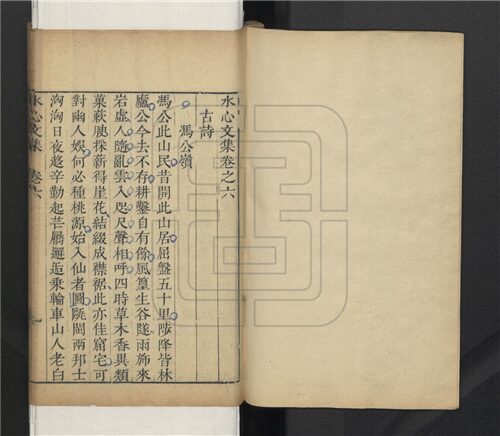 水心文集卷之六
古詩
馮公嶺
馮公此山民昔開此山居屈盤五十里陟降皆林
廬公今去不存耕鑿自有餘風篁生谷隧雨旆來
岩虛人隨亂雲入咫尺聲相呼四時草木香異類
菓蓛腴採薪得崖花結綴成襟裾此亦佳窟宅可
對幽人娛何必種桃源始入仙者圖甌閩兩邦士
洶洶日夜趨辛勤起芒屩邂逅乘輪車山人老白
水心文集 卷六 一